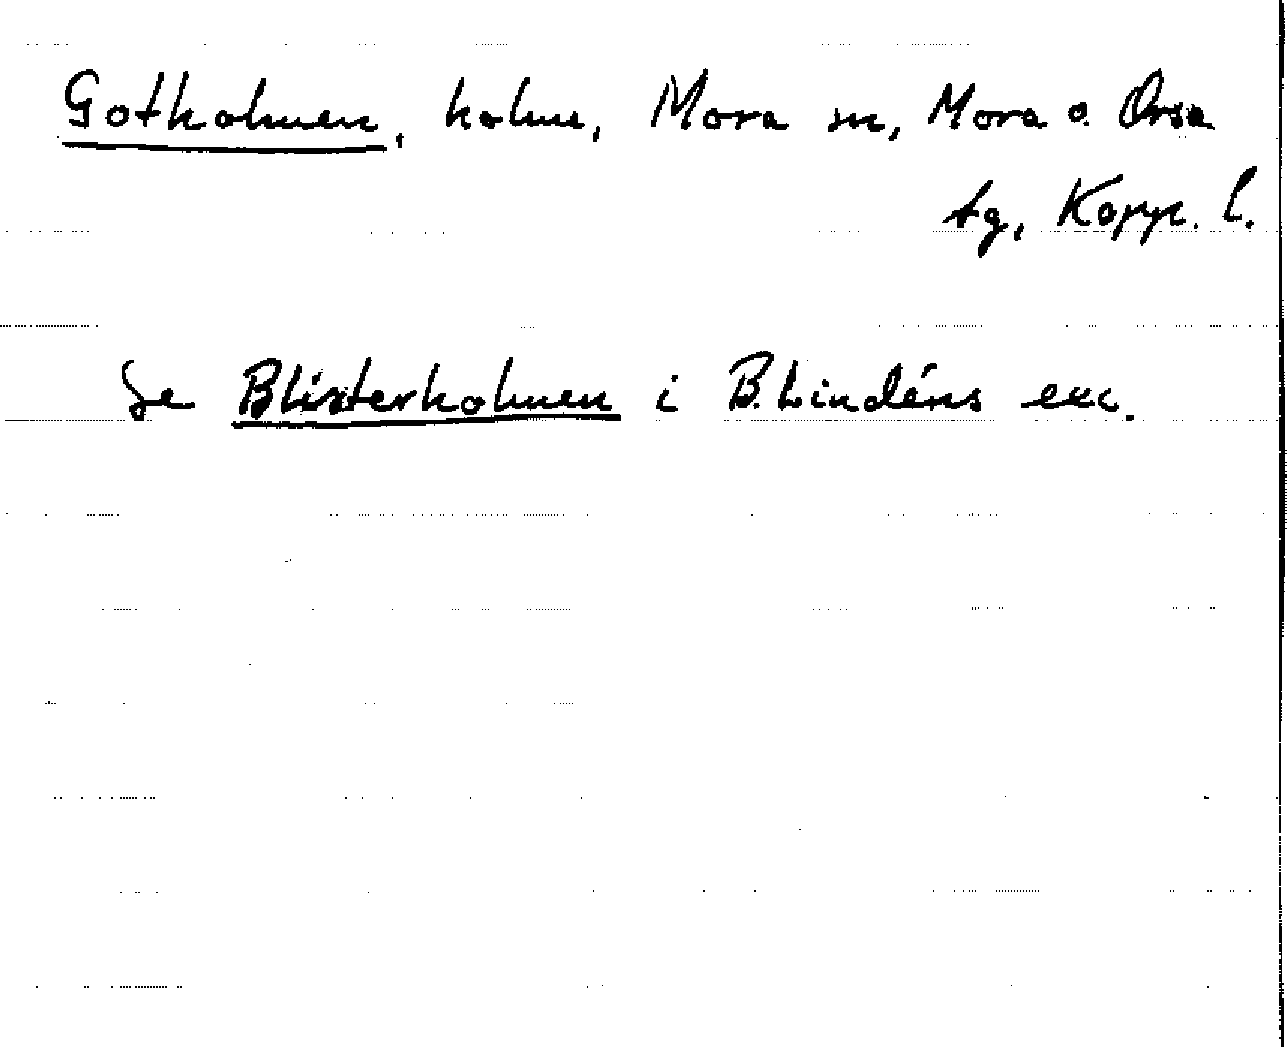 Gotholmen, holme, Mora sn, Mora o. Orsa
tg, Kopp. l.
Se Blisterholmen i B. Lindéns exc.